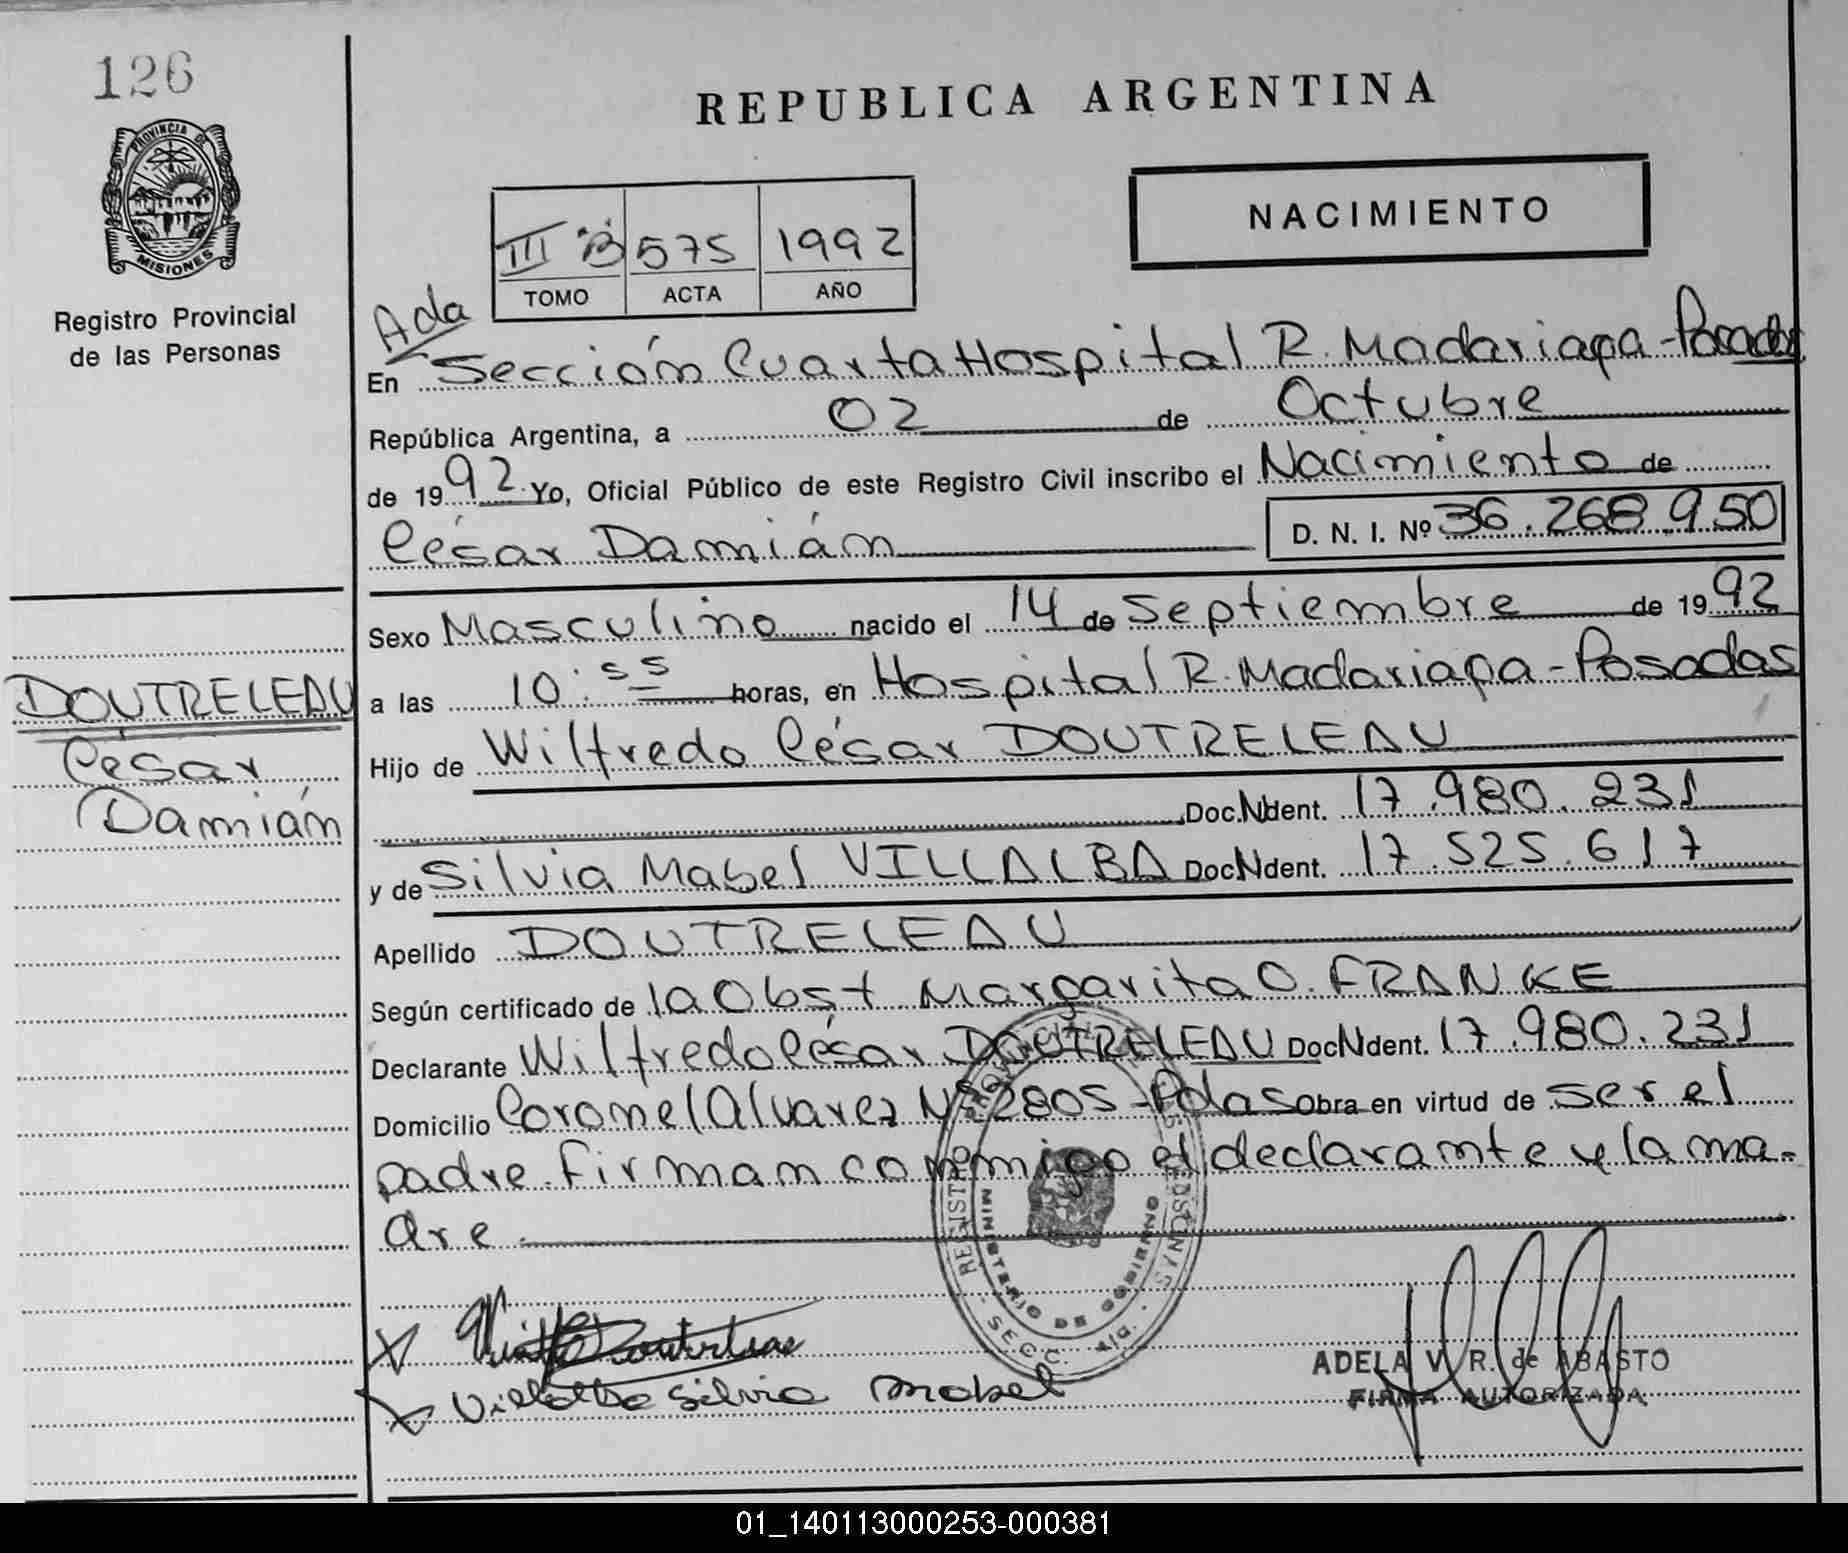 126
PROVINCIA DE
MISIONES
Registro Provincial
de las Personas
DOUTRELEAU
César
Damián
REPUBLICA ARGENTINA
III "B" 575 1992
TOMO ACTA AÑO
NACIMIENTO
Ada
En Sección Cuarta Hospital R. Madariaga - Posadas
República Argentina, a 02 de Octubre
de 1992. Yo, Oficial Público de este Registro Civil inscribo el Nacimiento de
César Damián D. N. I. Nº 36.268.950
Sexo Masculino nacido el 14 de Septiembre de 1992
a las 10:55 horas, en Hospital R. Madariaga - Posadas
Hijo de Wilfredo César DOUTRELEAU
Doc. Ident. 17.980.231
y de Silvia Mabel VILLALBA Doc Ident. 17.525.617
Apellido DOUTRELEAU
Según certificado de la Obst Margarita O. FRANKE
Declarante Wilfredo César DOUTRELEAU Doc Ident. 17.980.231
Domicilio Coronel Alvarez Nº 2805 - Pdas Obra en virtud de ser el
padre. Firman conmigo el declarante y la ma-
dre
MINISTERIO DE GOBIERNO
Villalba Silvia Mabel
ADELA V. R. de ABASTO
FIRMA AUTORIZADA
01_140113000253-000381